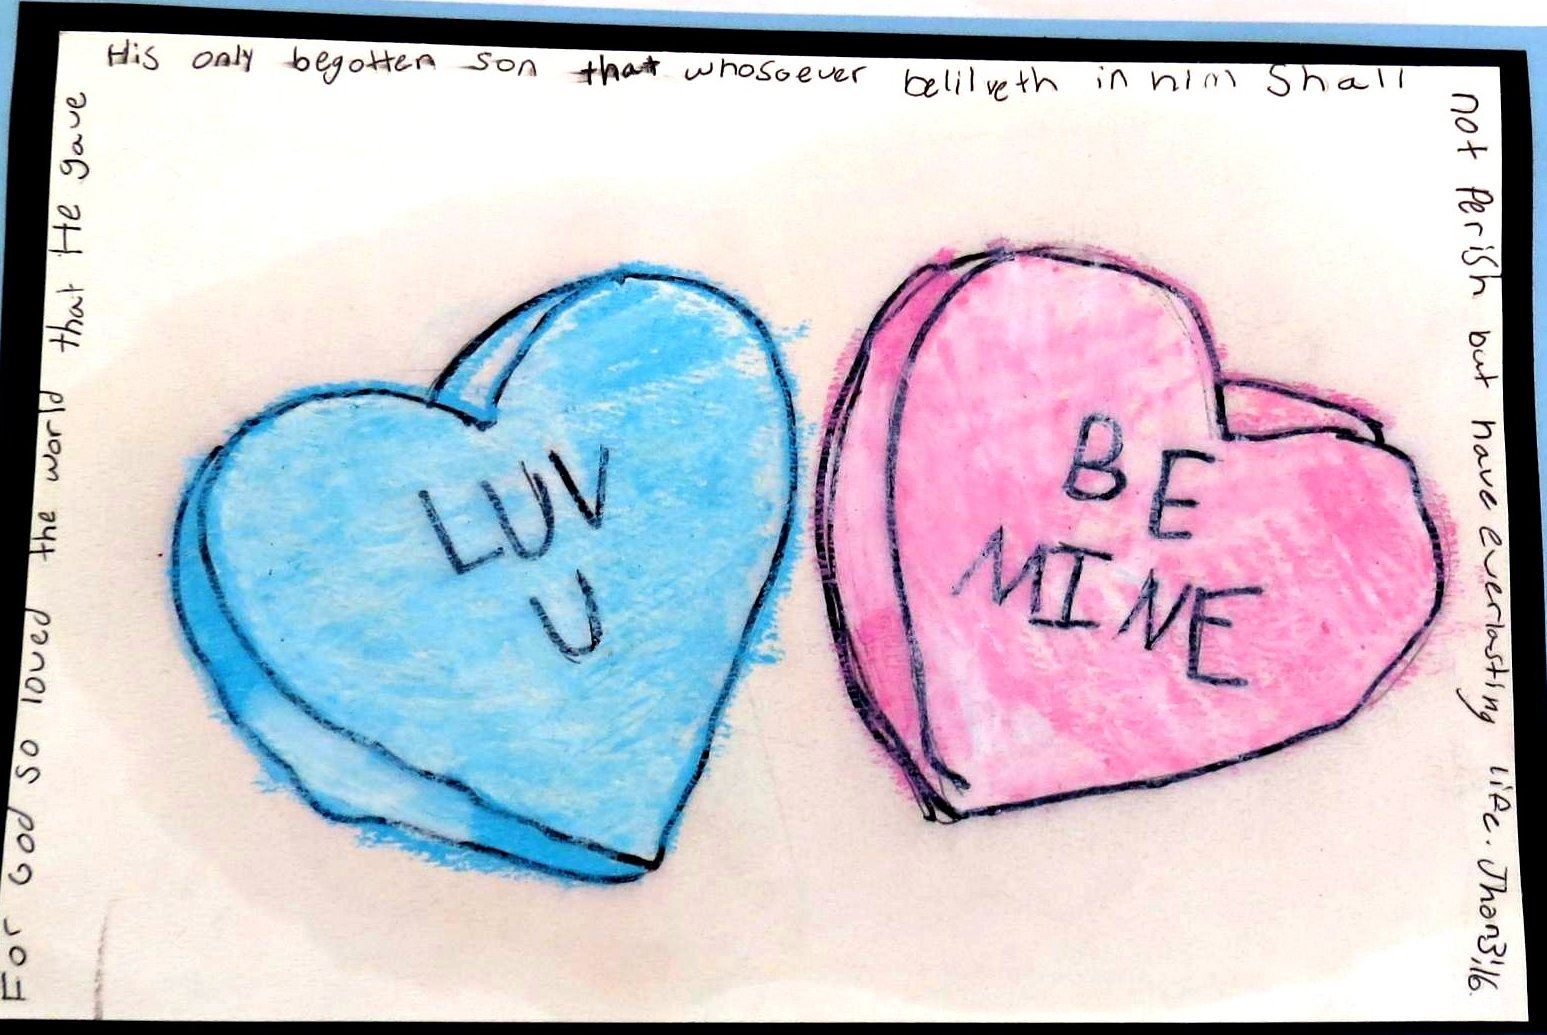 For God so loved the world that He gave
His only begotten son that whosoever belilveth in him Shall
not Perish but have everlasting life. Jhon3:16.
LUV
U
BE
MINE